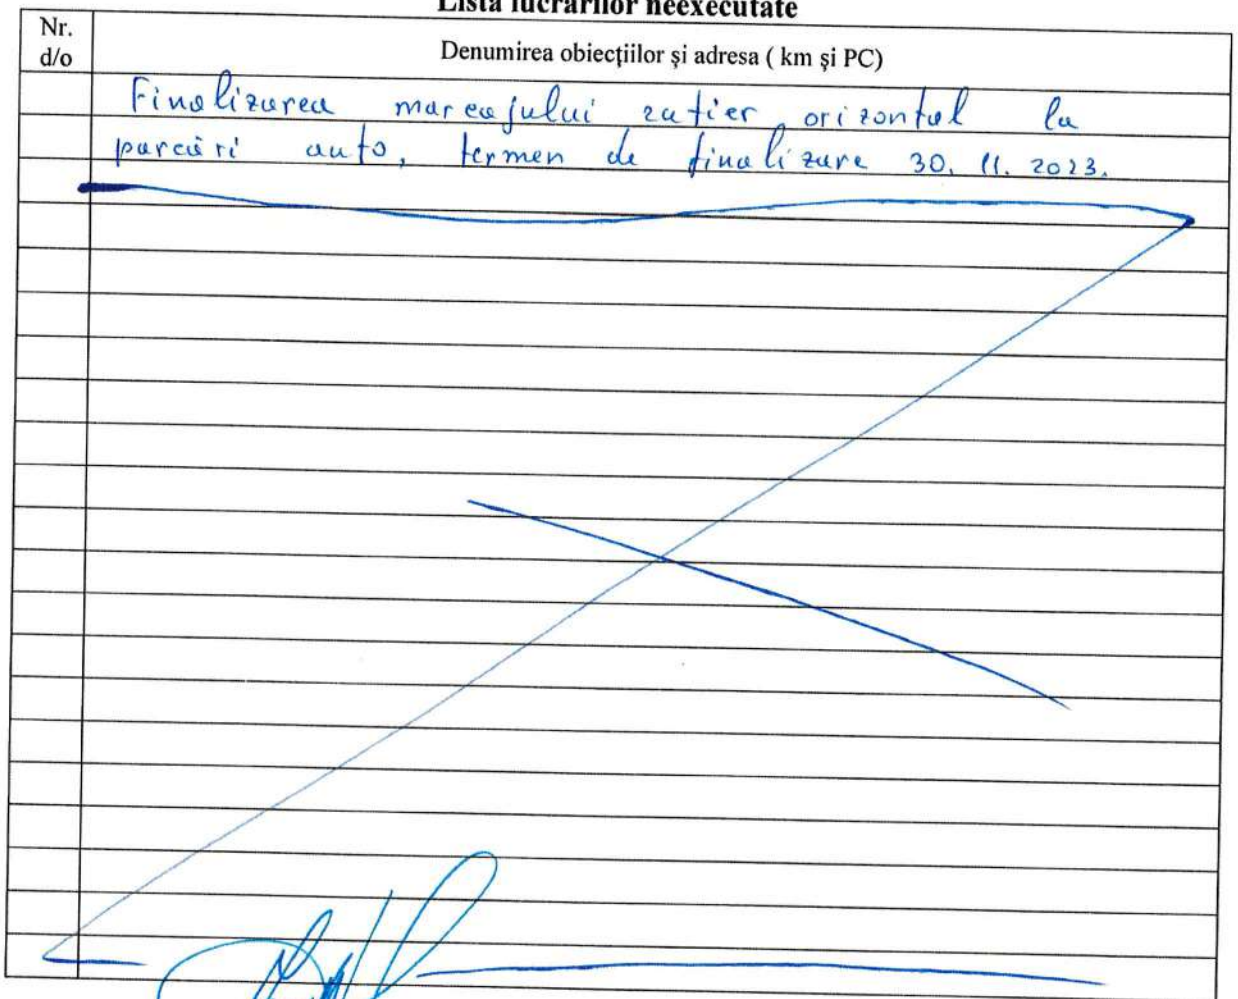 Lista lucrărilor neexecutate
Nr.
d/o
Denumirea obiecțiilor și adresa ( km și PC)
Finalizarea marcajului rutier orizontal la
parcări auto, termen de finalizare 30. 11. 2023.